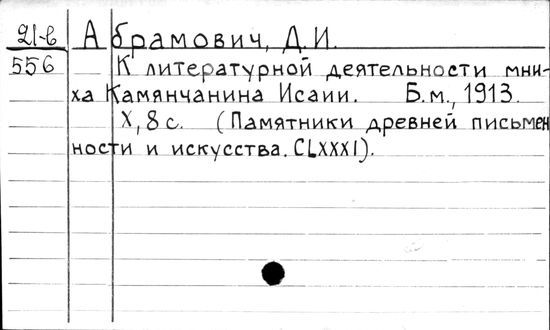 21-в Абрамович, Д.И.
556 К литературной деятельности мни-
ха Камянчанина Исаии. Б.м., 1913.
X, 8 с. (Памятники древней письмен
ности и искусства. CLXXXI).